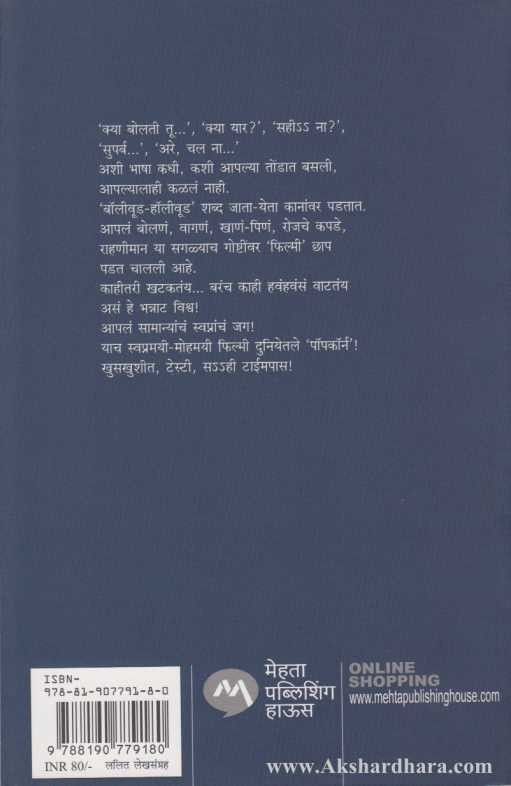 ‘क्या बोलती तू...’, ‘क्या यार?’, ‘सहीऽऽ ना?’,
‘सुपर्ब...’, ‘अरे, चल ना...’
अशी भाषा कधी, कशी आपल्या तोंडात बसली,
आपल्यालाही कळलं नाही.
‘बॉलीवूड-हॉलीवूड’ शब्द जाता-येता कानांवर पडतात.
आपलं बोलणं, वागणं, खाणं-पिणं, रोजचे कपडे,
राहणीमान या सगळ्याच गोष्टींवर ‘फिल्मी’ छाप
पडत चालली आहे.
काहीतरी खटकतंय... बरंच काही हवंहवंसं वाटतंय
असं हे भन्नाट विश्व!
आपलं सामान्यांचं स्वप्नांचं जग!
याच स्वप्नमयी-मोहमयी फिल्मी दुनियेतले ‘पॉपकॉर्न’!
खुसखुशीत, टेस्टी, सऽऽही टाईमपास!
ISBN-
978-81-907791-8-0
9 788190 779180
INR 80/- ललित लेखसंग्रह
मेहता
पब्लिशिंग
हाऊस
ONLINE
SHOPPING
www.mehtapublishinghouse.com
www.Akshardhara.com